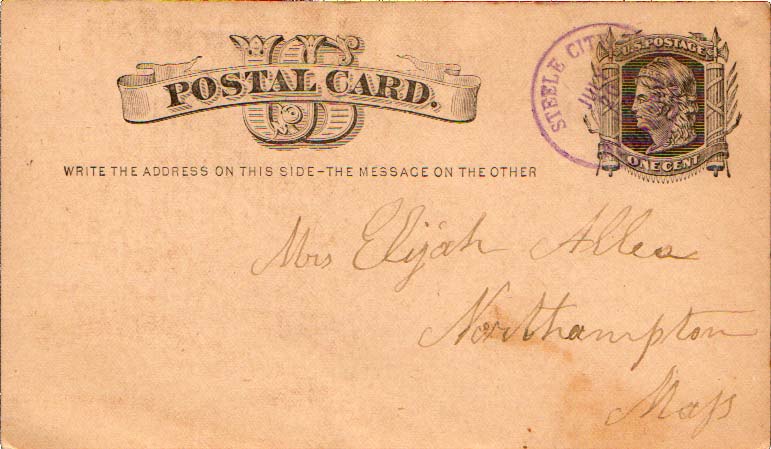 US
POSTAL CARD.
STEELE CITY
U.S. POSTAGE
ONE CENT
WRITE THE ADDRESS ON THIS SIDE–THE MESSAGE ON THE OTHER
Mrs Elijah Allen
Northampton
Mass